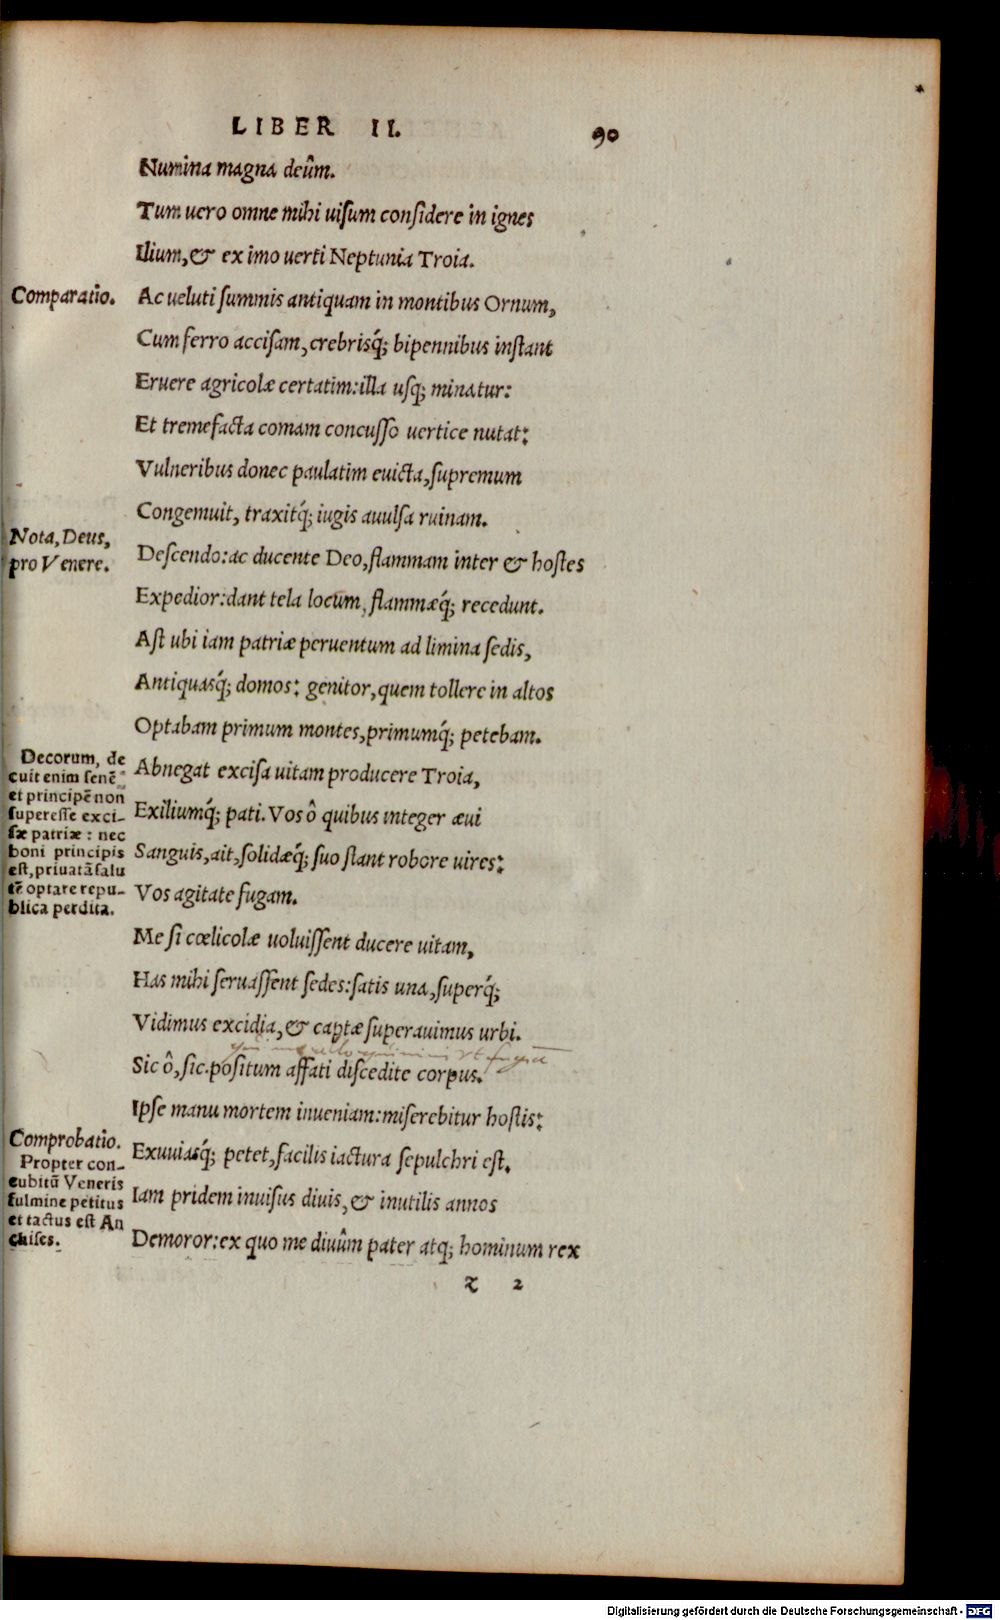 LIBER II. 90
Numina magna deûm.
Tum uero omne mihi uisum considere in ignes
Ilium, & ex imo uerti Neptunia Troia.
Comparatio.
Ac ueluti summis antiquam in montibus Ornum,
Cum ferro accisam, crebrisq́; bipennibus instant
Eruere agricolæ certatim: illa usq; minatur:
Et tremefacta comam concusso uertice nutat:
Vulneribus donec paulatim euicta, supremum
Congemuit, traxitq́; iugis auulsa ruinam.
Nota, Deus,
pro Venere.
Descendo: ac ducente Deo, flammam inter & hostes
Expedior: dant tela locum, flammæq́; recedunt.
Ast ubi iam patriæ peruentum ad limina sedis,
Antiquasq́; domos: genitor, quem tollere in altos
Optabam primum montes, primumq́; petebam.
Decorum, de
cuit enim senē
et principē non
superesse exci-
sæ patriæ: nec
boni principis
est, priuatā salu
tē optare repu-
blica perdita.
Abnegat excisa uitam producere Troia,
Exiliumq́; pati. Vos ô quibus integer æui
Sanguis, ait, solidæq́; suo stant robore uires:
Vos agitate fugam.
Me si cœlicolæ uoluissent ducere uitam,
Has mihi seruassent sedes: satis una, superq́;
Vidimus excidia, & captæ superauimus urbi.
Sic ô, sic. positum affati discedite corpus.
Ipse manu mortem inueniam: miserebitur hostis:
Comprobatio.
Propter con-
cubitū Veneris
fulmine petitus
et tactus est An
chises.
Exuuiasq́; petet, facilis iactura sepulchri est.
Iam pridem inuisus diuis, & inutilis annos
Demoror: ex quo me diuûm pater atq; hominum rex
z 2
Digitalisierung gefördert durch die Deutsche Forschungsgemeinschaft - DFG